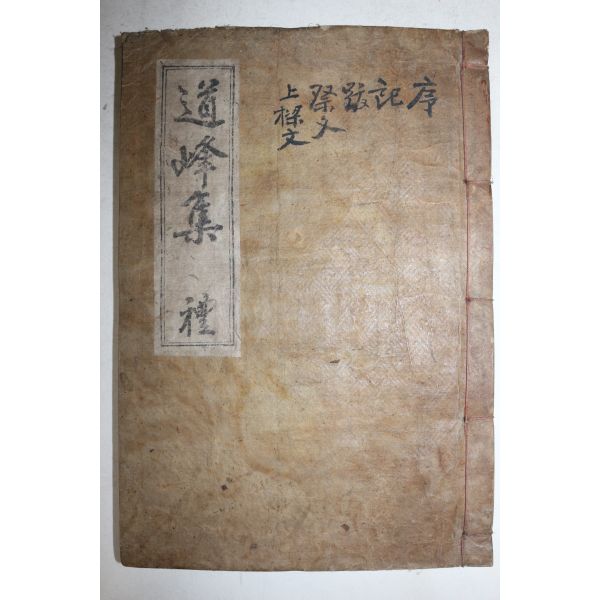 序
記
跋
祭文
上樑文
道峰集 禮